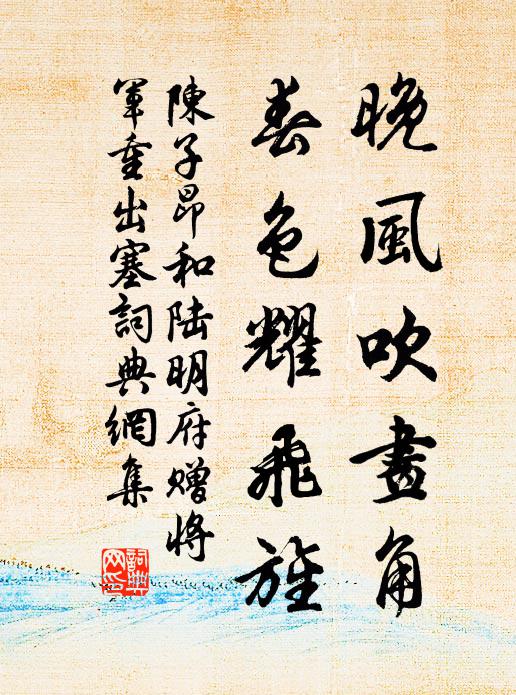 晚風吹畫角
春色耀飛旌
陳子昂和陸明府贈將
軍重出塞詞典網集
詞典
网印